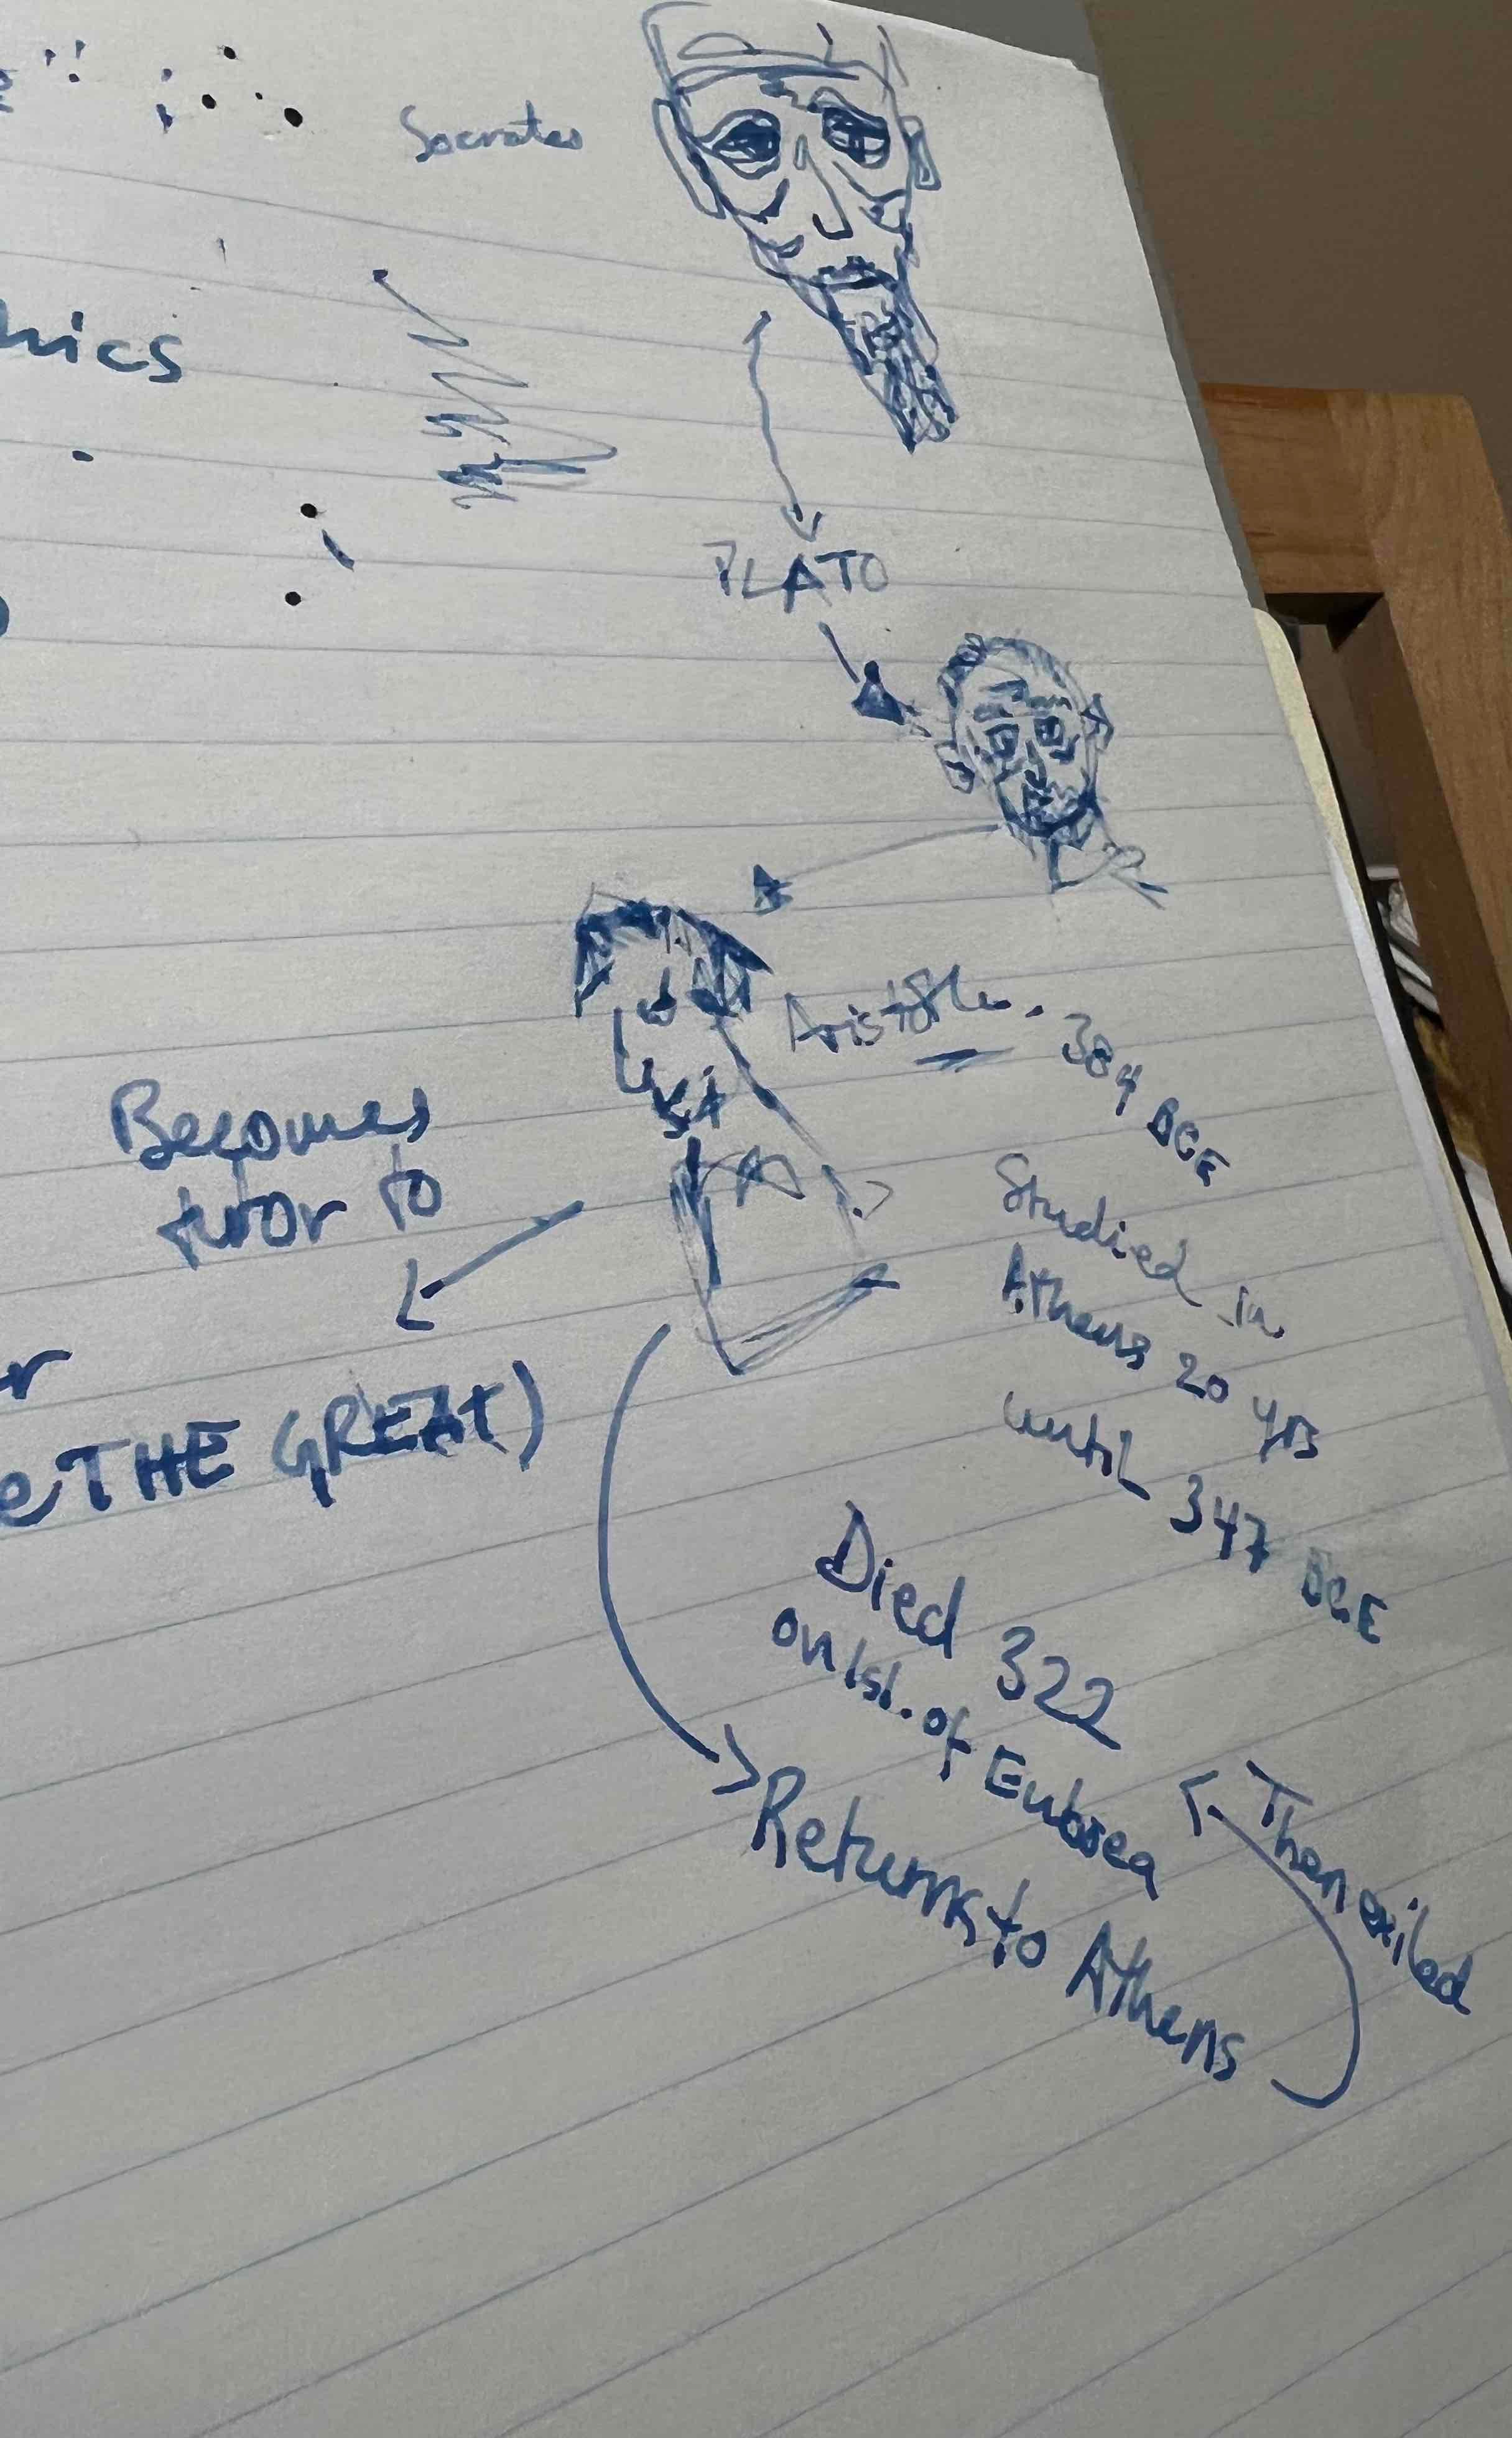 Socrates
hics
PLATO
Aristotle.
384 BCE
Studied in
Athens 20 yrs
until 347 BCE
Becomes
tutor to
r
e THE GREAT)
Died 322
on Isl. of Euboea
Returns to Athens
Then exiled